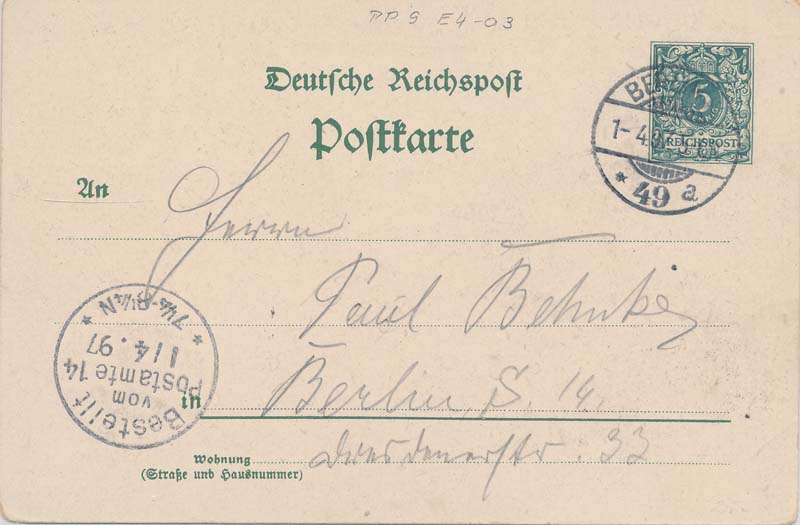 PP 9 E4-03
Deutsche Reichspost
Postkarte
5
REICHSPOST
BERLIN
1-4.97
* 49 a
An
Herrn
Paul Behnke
in Berlin, S. 14.
Wohnung
(Straße und Hausnummer)
Dresdenerstr. 33
Bestellt
vom
Postamte 14
1/4.97
* 7¼-8¼N *